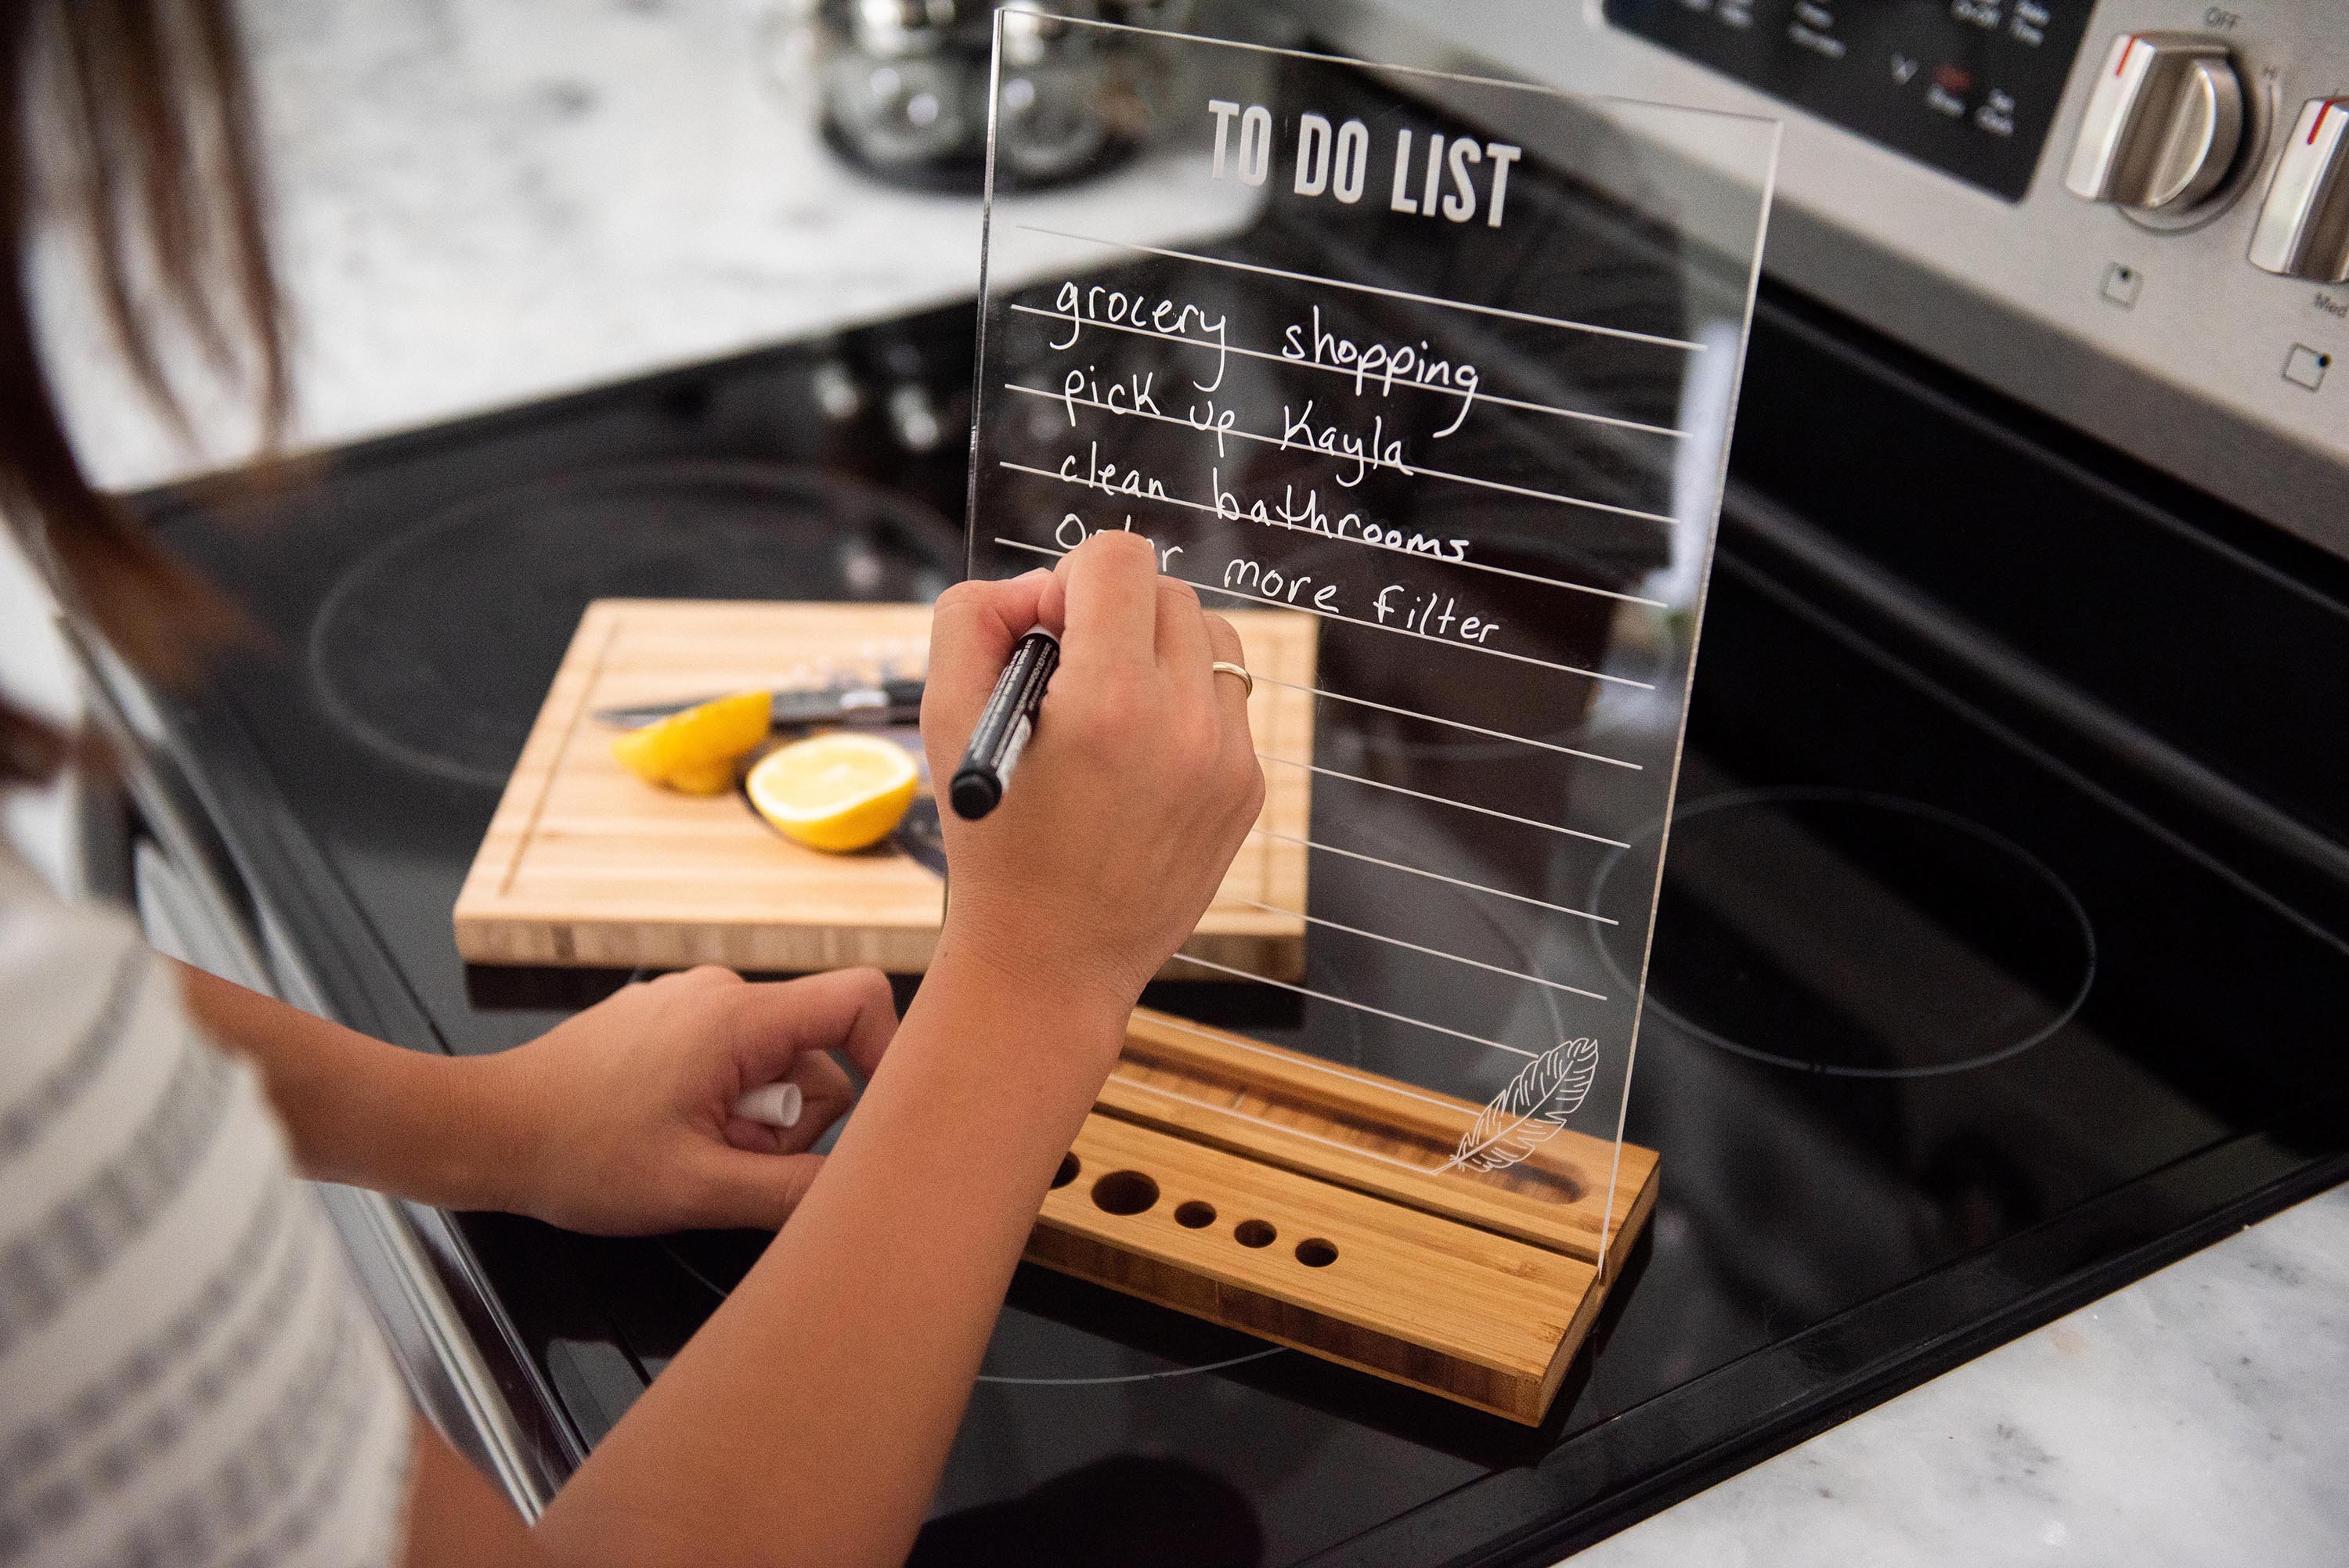 TO DO LIST
grocery shopping
pick up Kayla
clean bathrooms
Order more filter
OFF
HI
Med